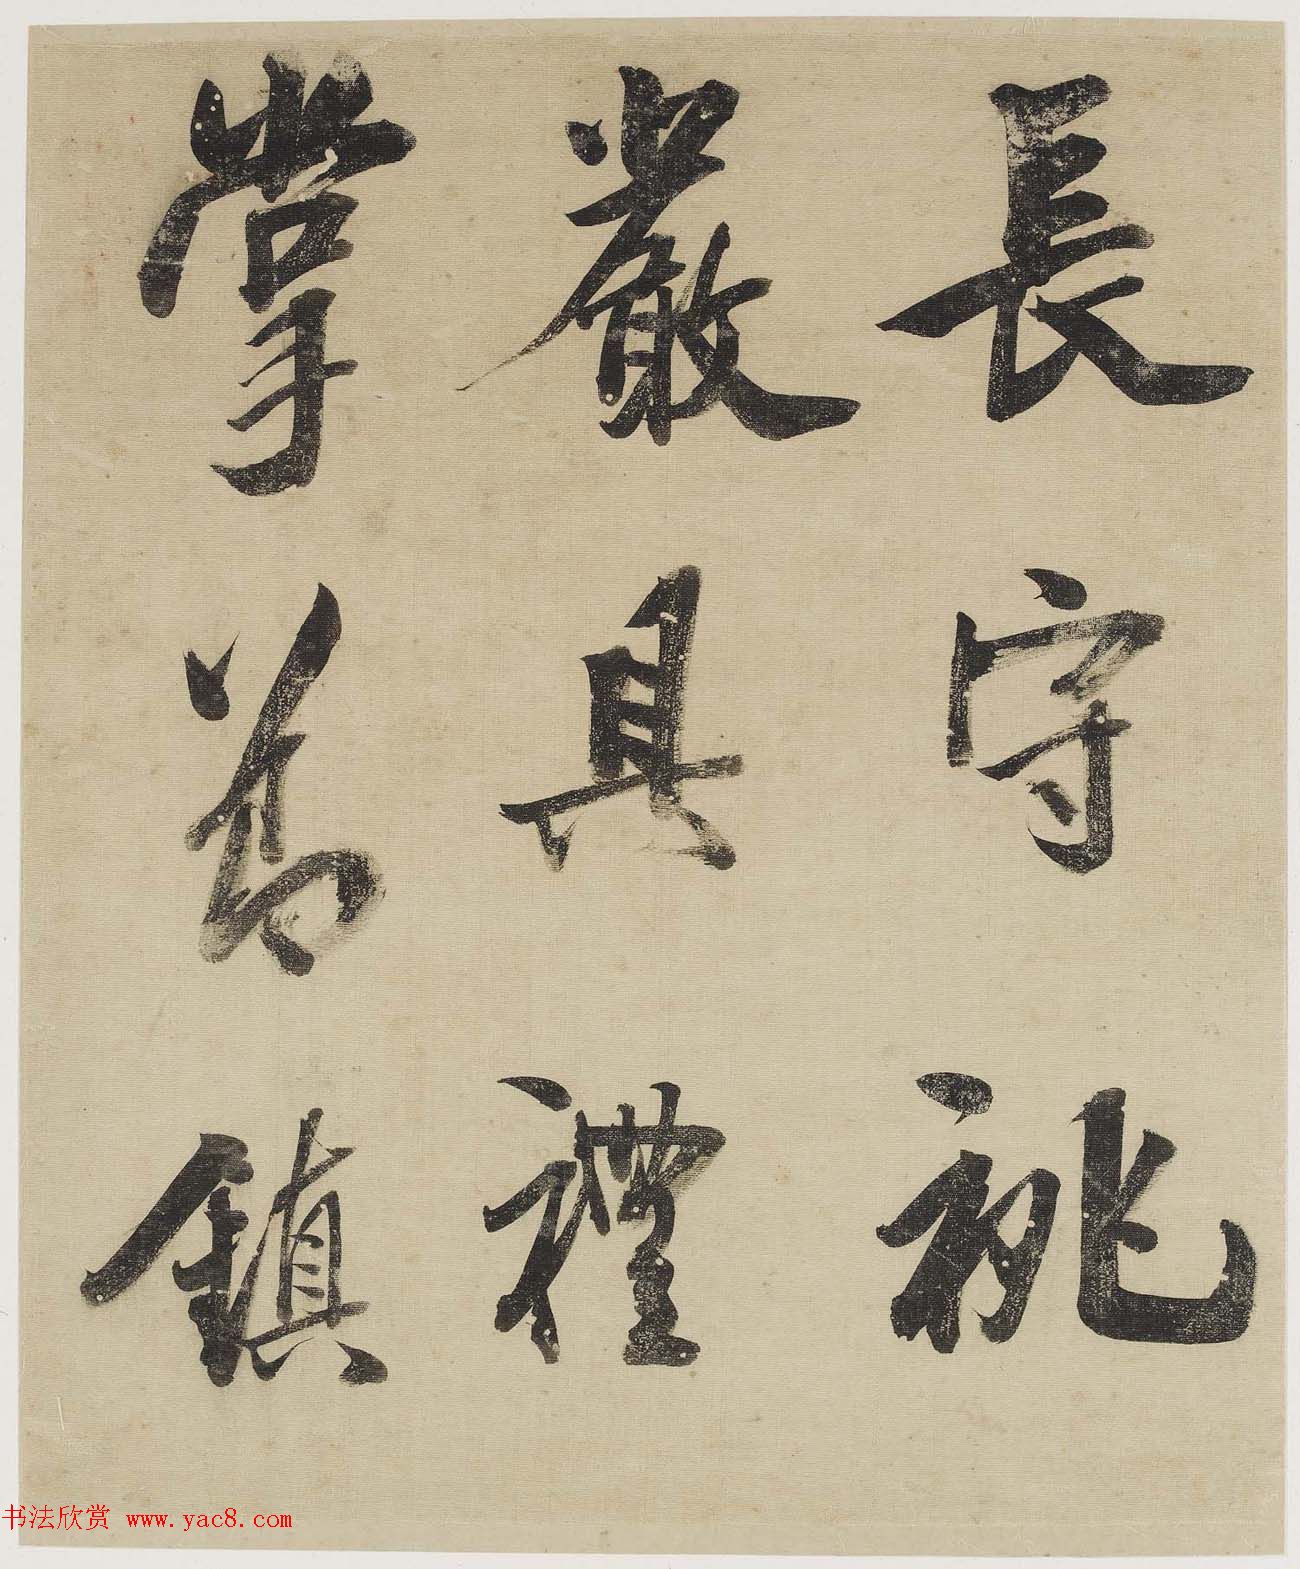 長守祧
嚴具禮
掌節鎮
书法欣赏 www.yac8.com